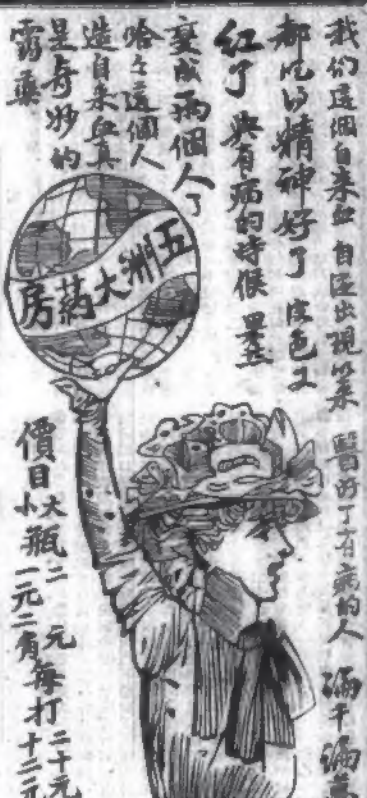 我们這個自来血自從出現以来 醫好了有病的人
都吃的精神好了 皮色又
紅了 與有病的時候
變成兩個人了
哈哈這個人
造自来血真
是奇妙的
靈藥
五洲大葯房
價目 大瓶二元 每打二十元
小瓶一元二角 每打十二元